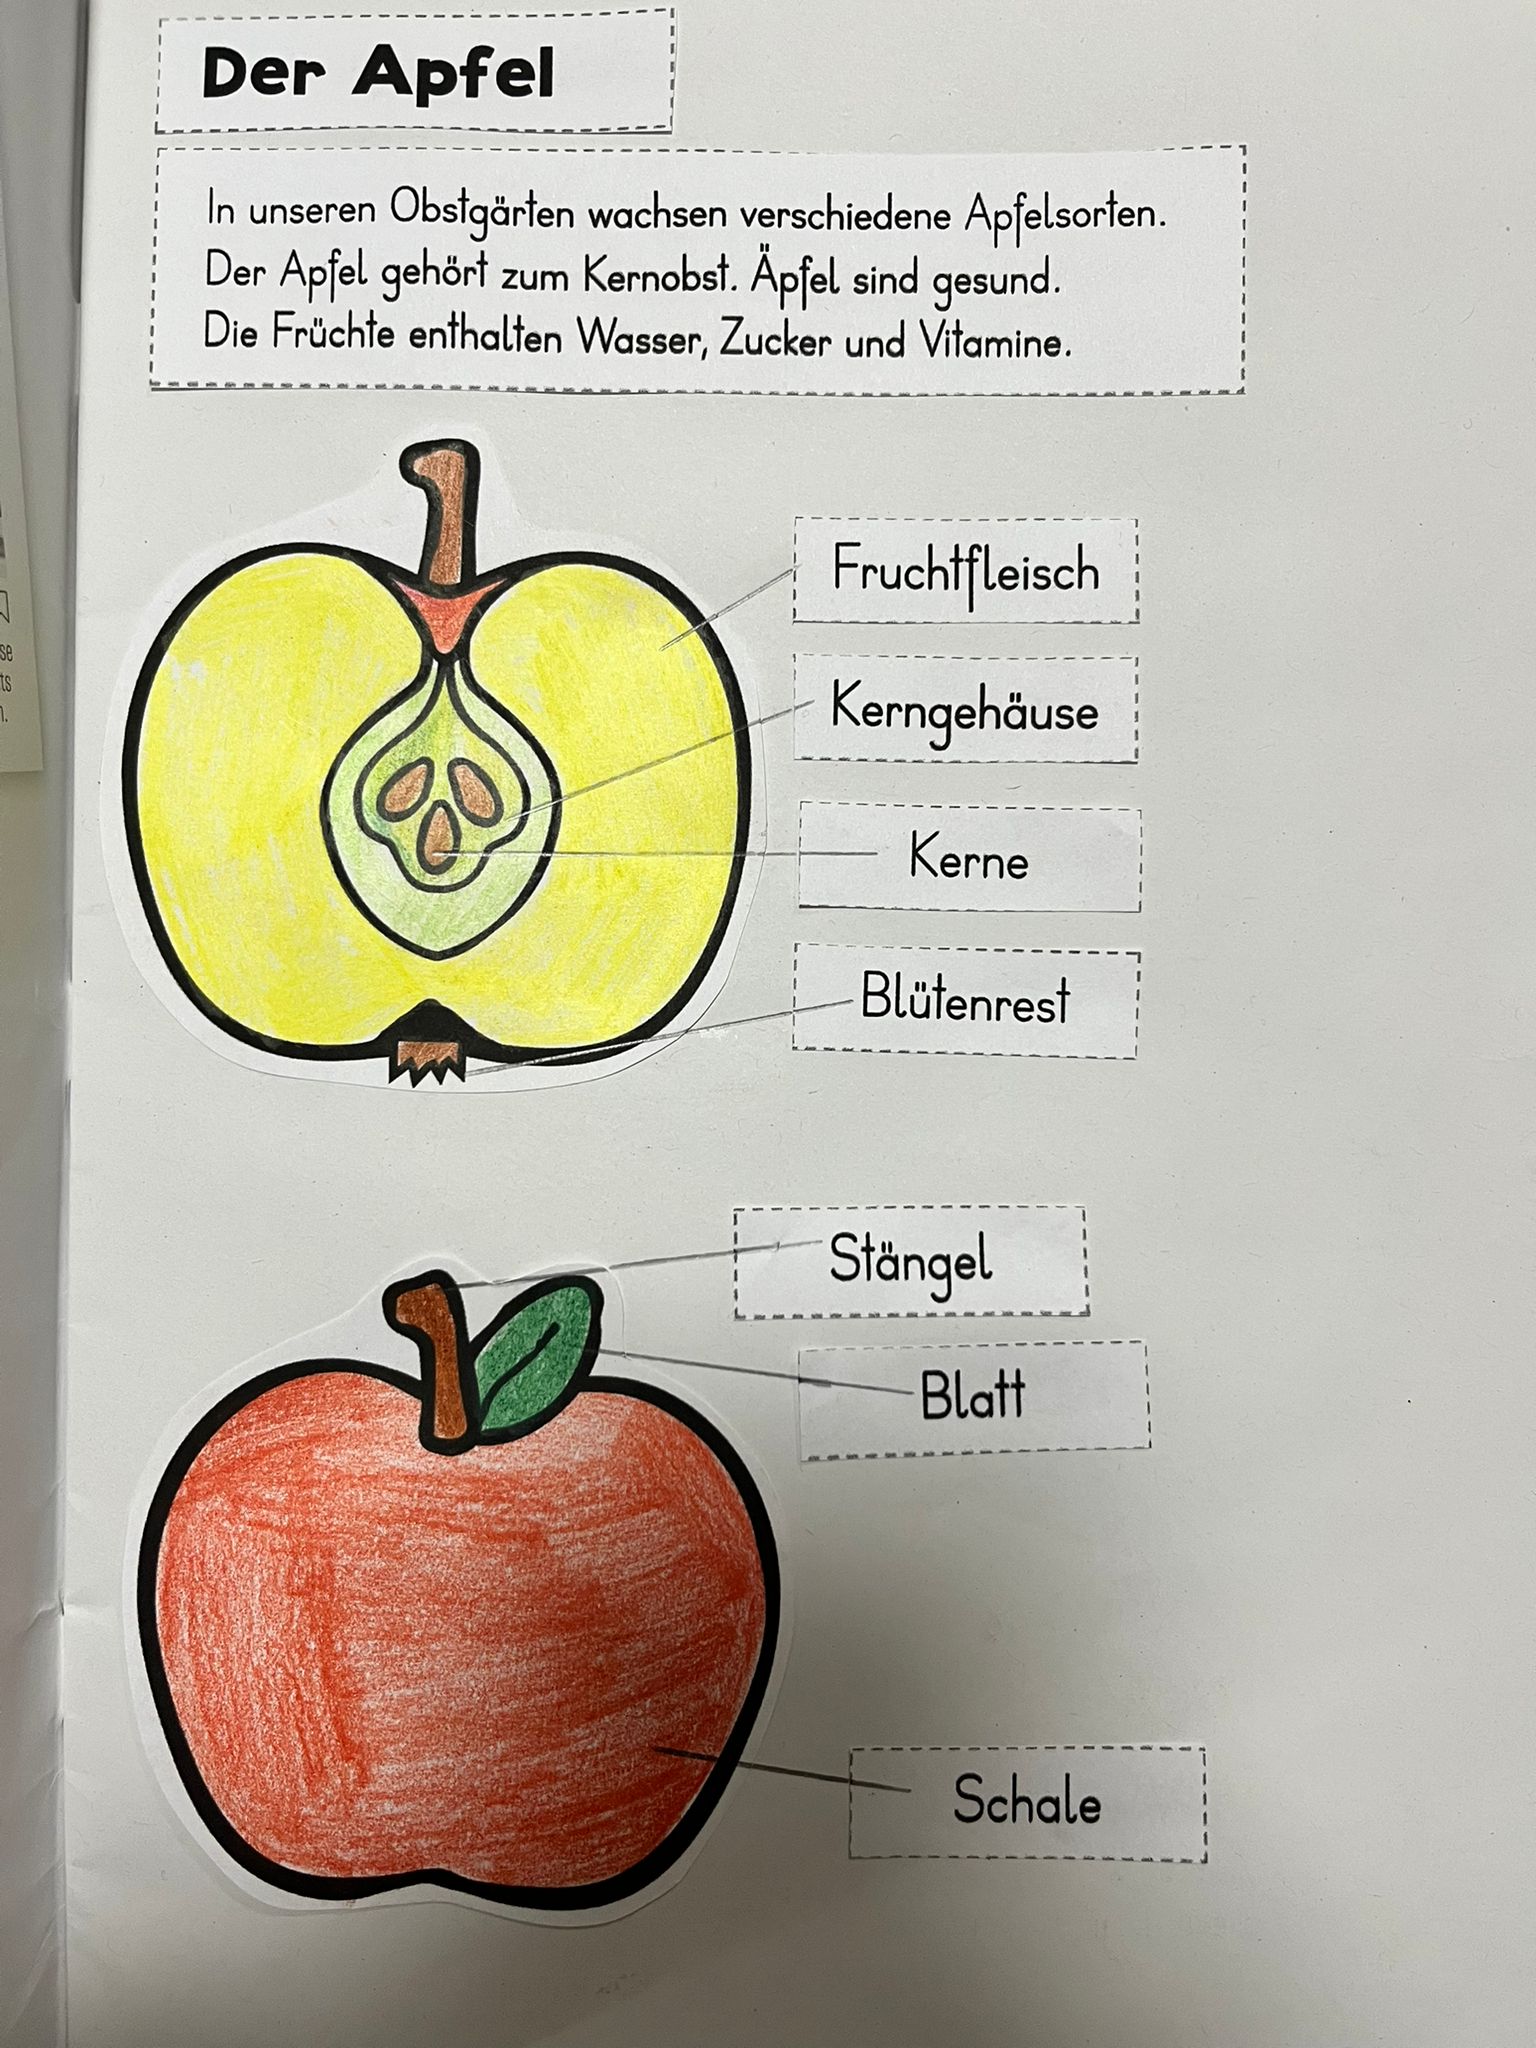 Der Apfel
In unseren Obstgärten wachsen verschiedene Apfelsorten.
Der Apfel gehört zum Kernobst. Äpfel sind gesund.
Die Früchte enthalten Wasser, Zucker und Vitamine.
Fruchtfleisch
Kerngehäuse
Kerne
Blütenrest
Stängel
Blatt
Schale